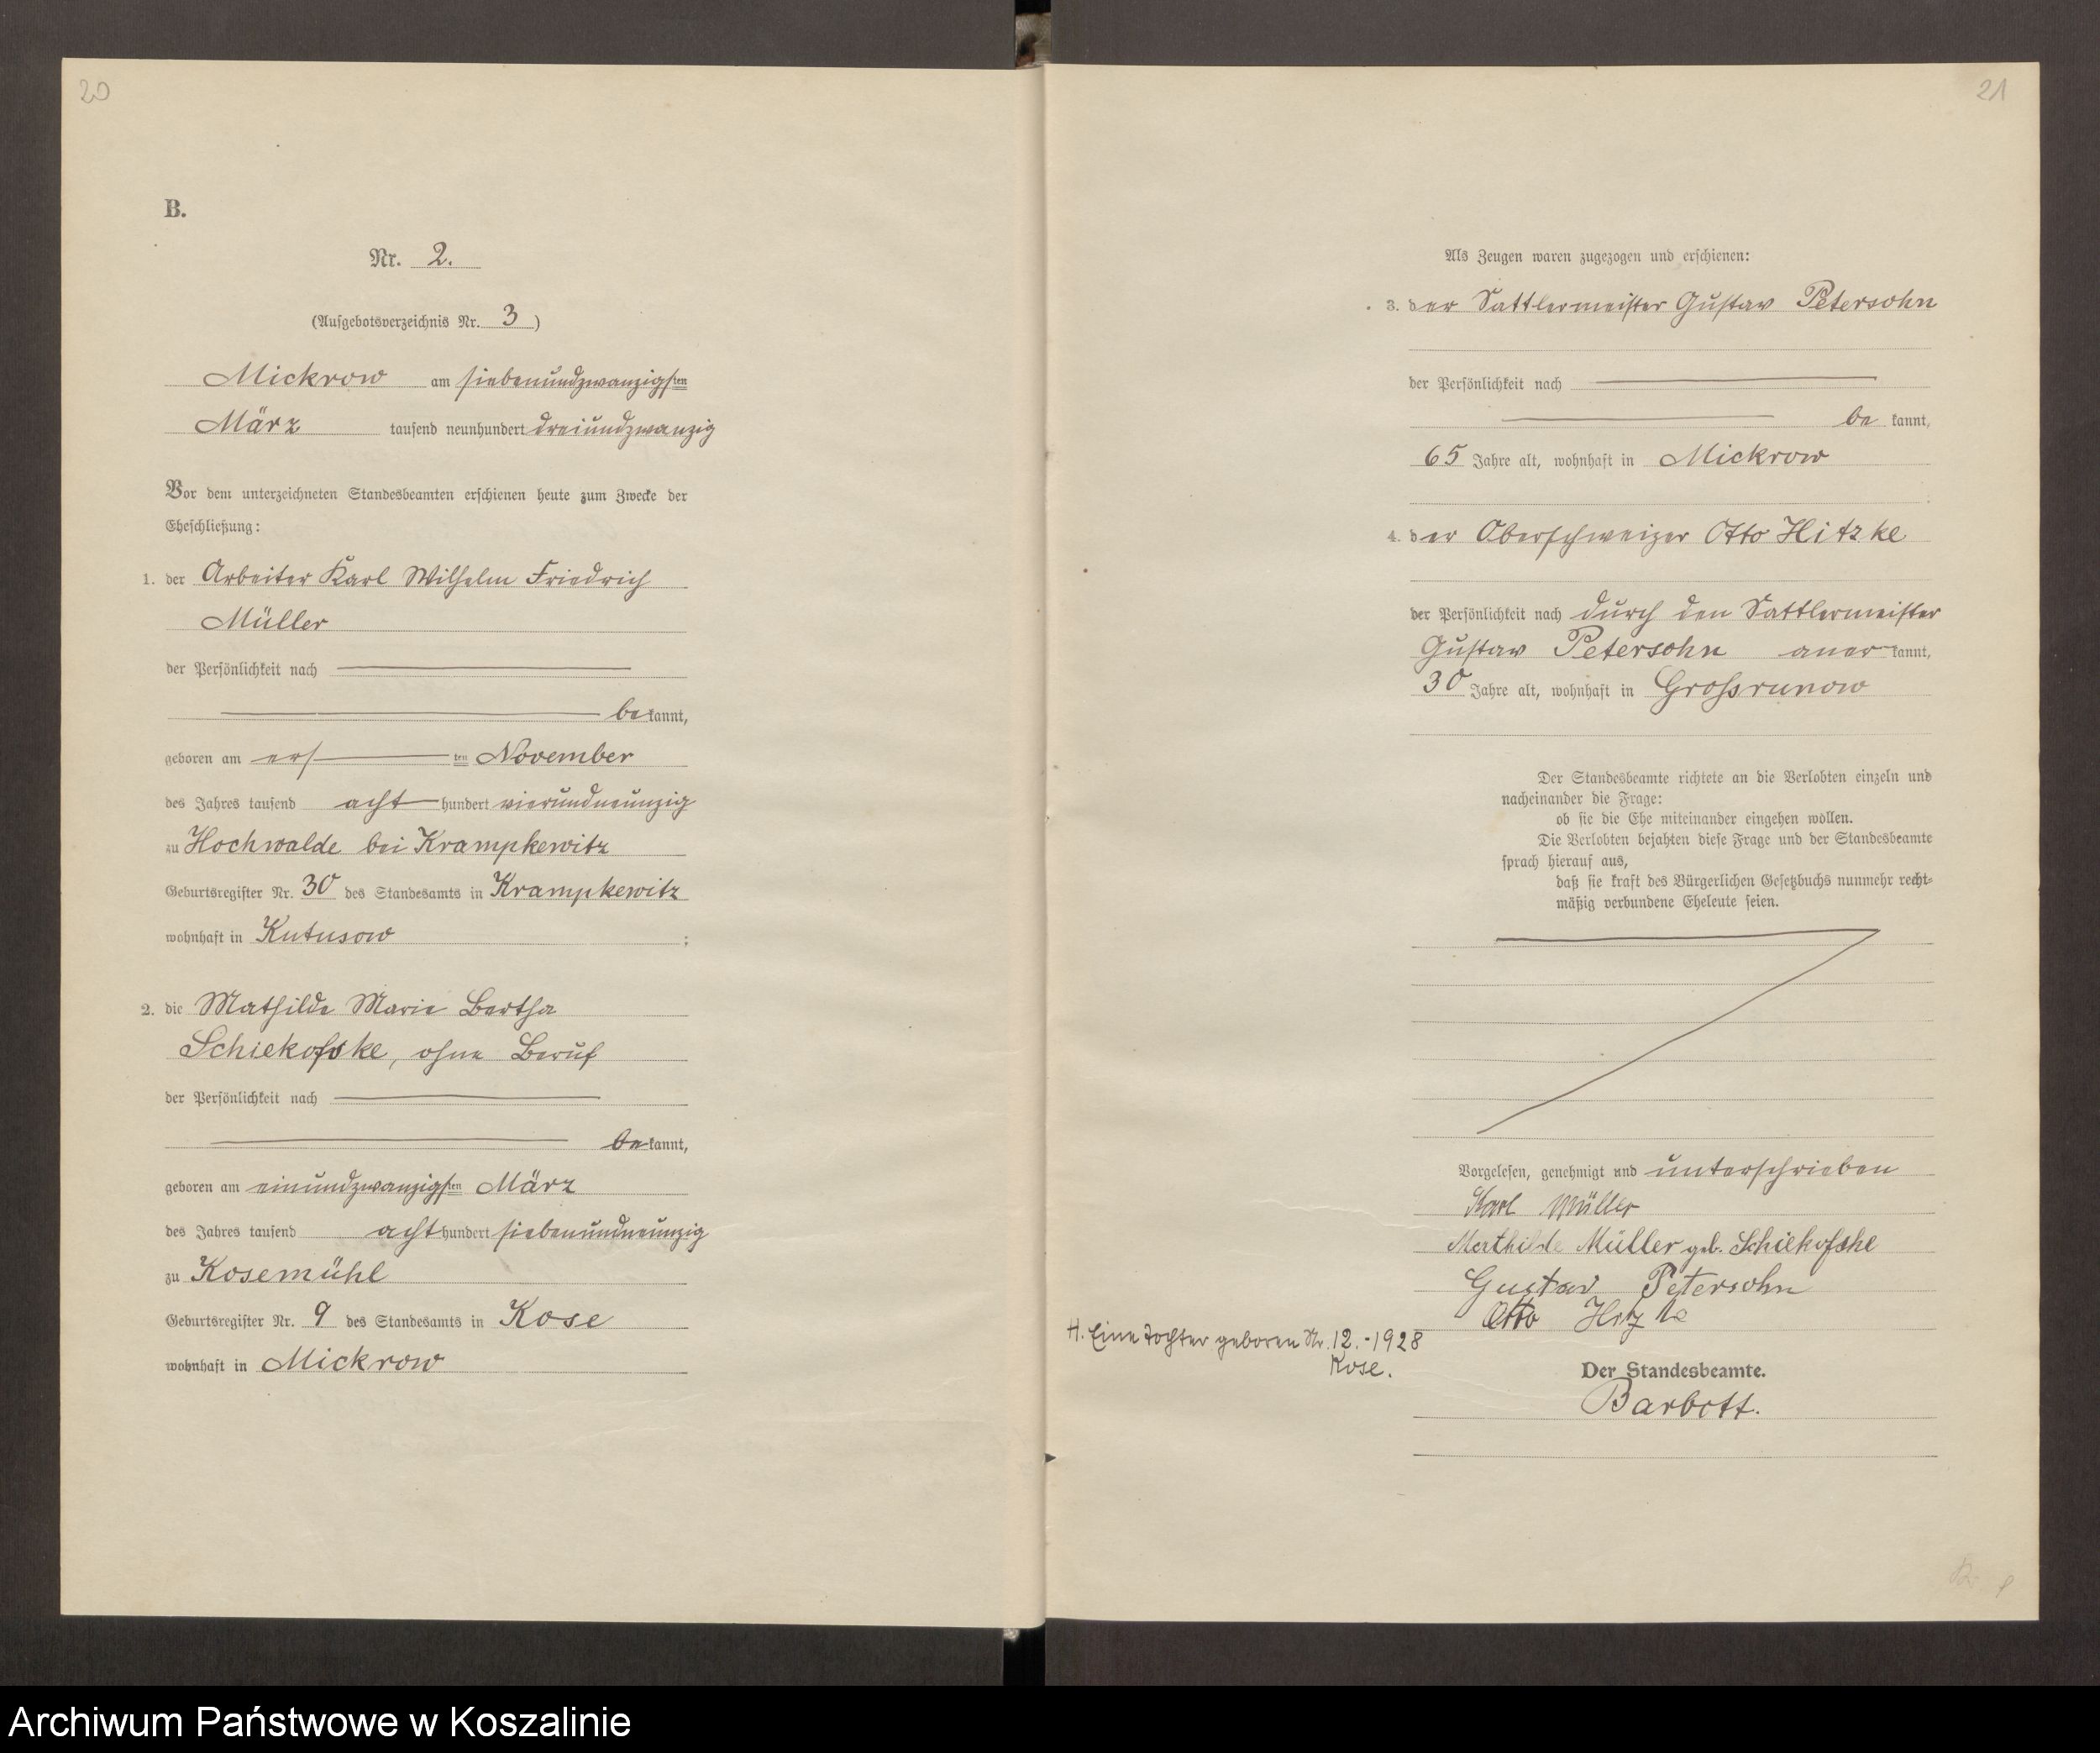 20
B.
Nr. 2.
(Aufgebotsverzeichnis Nr. 3)
Mickrow am siebenundzwanzigsten
März tausend neunhundert dreiundzwanzig
Vor dem unterzeichneten Standesbeamten erschienen heute zum Zwecke der
Eheschließung:
1. der Arbeiter Karl Wilhelm Friedrich
Müller
der Persönlichkeit nach
bekannt,
geboren am ersten November
des Jahres tausend acht hundert vierundneunzig
zu Hochwalde bei Krampkewitz
Geburtsregister Nr. 30 des Standesamts in Krampkewitz
wohnhaft in Kutusow ;
2. die Mathilde Marie Bertha
Schiekofske, ohne Beruf
der Persönlichkeit nach
bekannt,
geboren am einundzwanzigsten März
des Jahres tausend acht hundert siebenundneunzig
zu Kosemühl
Geburtsregister Nr. 9 des Standesamts in Kose
wohnhaft in Mickrow
21
Als Zeugen waren zugezogen und erschienen:
3. der Sattlermeister Gustav Petersohn
der Persönlichkeit nach
be kannt,
65 Jahre alt, wohnhaft in Mickrow
4. der Oberschweizer Otto Hitzke
der Persönlichkeit nach durch den Sattlermeister
Gustav Petersohn anerkannt,
30 Jahre alt, wohnhaft in Grossrunow
Der Standesbeamte richtete an die Verlobten einzeln und
nacheinander die Frage:
ob sie die Ehe miteinander eingehen wollen.
Die Verlobten bejahten diese Frage und der Standesbeamte
sprach hierauf aus,
daß sie kraft des Bürgerlichen Gesetzbuchs nunmehr recht-
mäßig verbundene Eheleute seien.
Vorgelesen, genehmigt und unterschrieben
Karl Müller
Mathilde Müller geb. Schiekofske
Gustav Petersohn
Otto Hitzke
H. Eine Tochter geboren Nr. 12.-1928
Kose.
Der Standesbeamte.
Barbott.
Archiwum Państwowe w Koszalinie